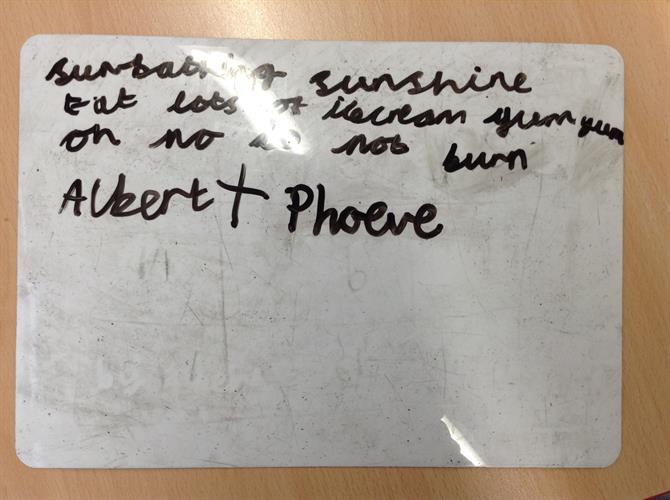 sunbathing sunshine
Eat lots of icecream yum yum
oh no do not burn
Albert + Phoeve